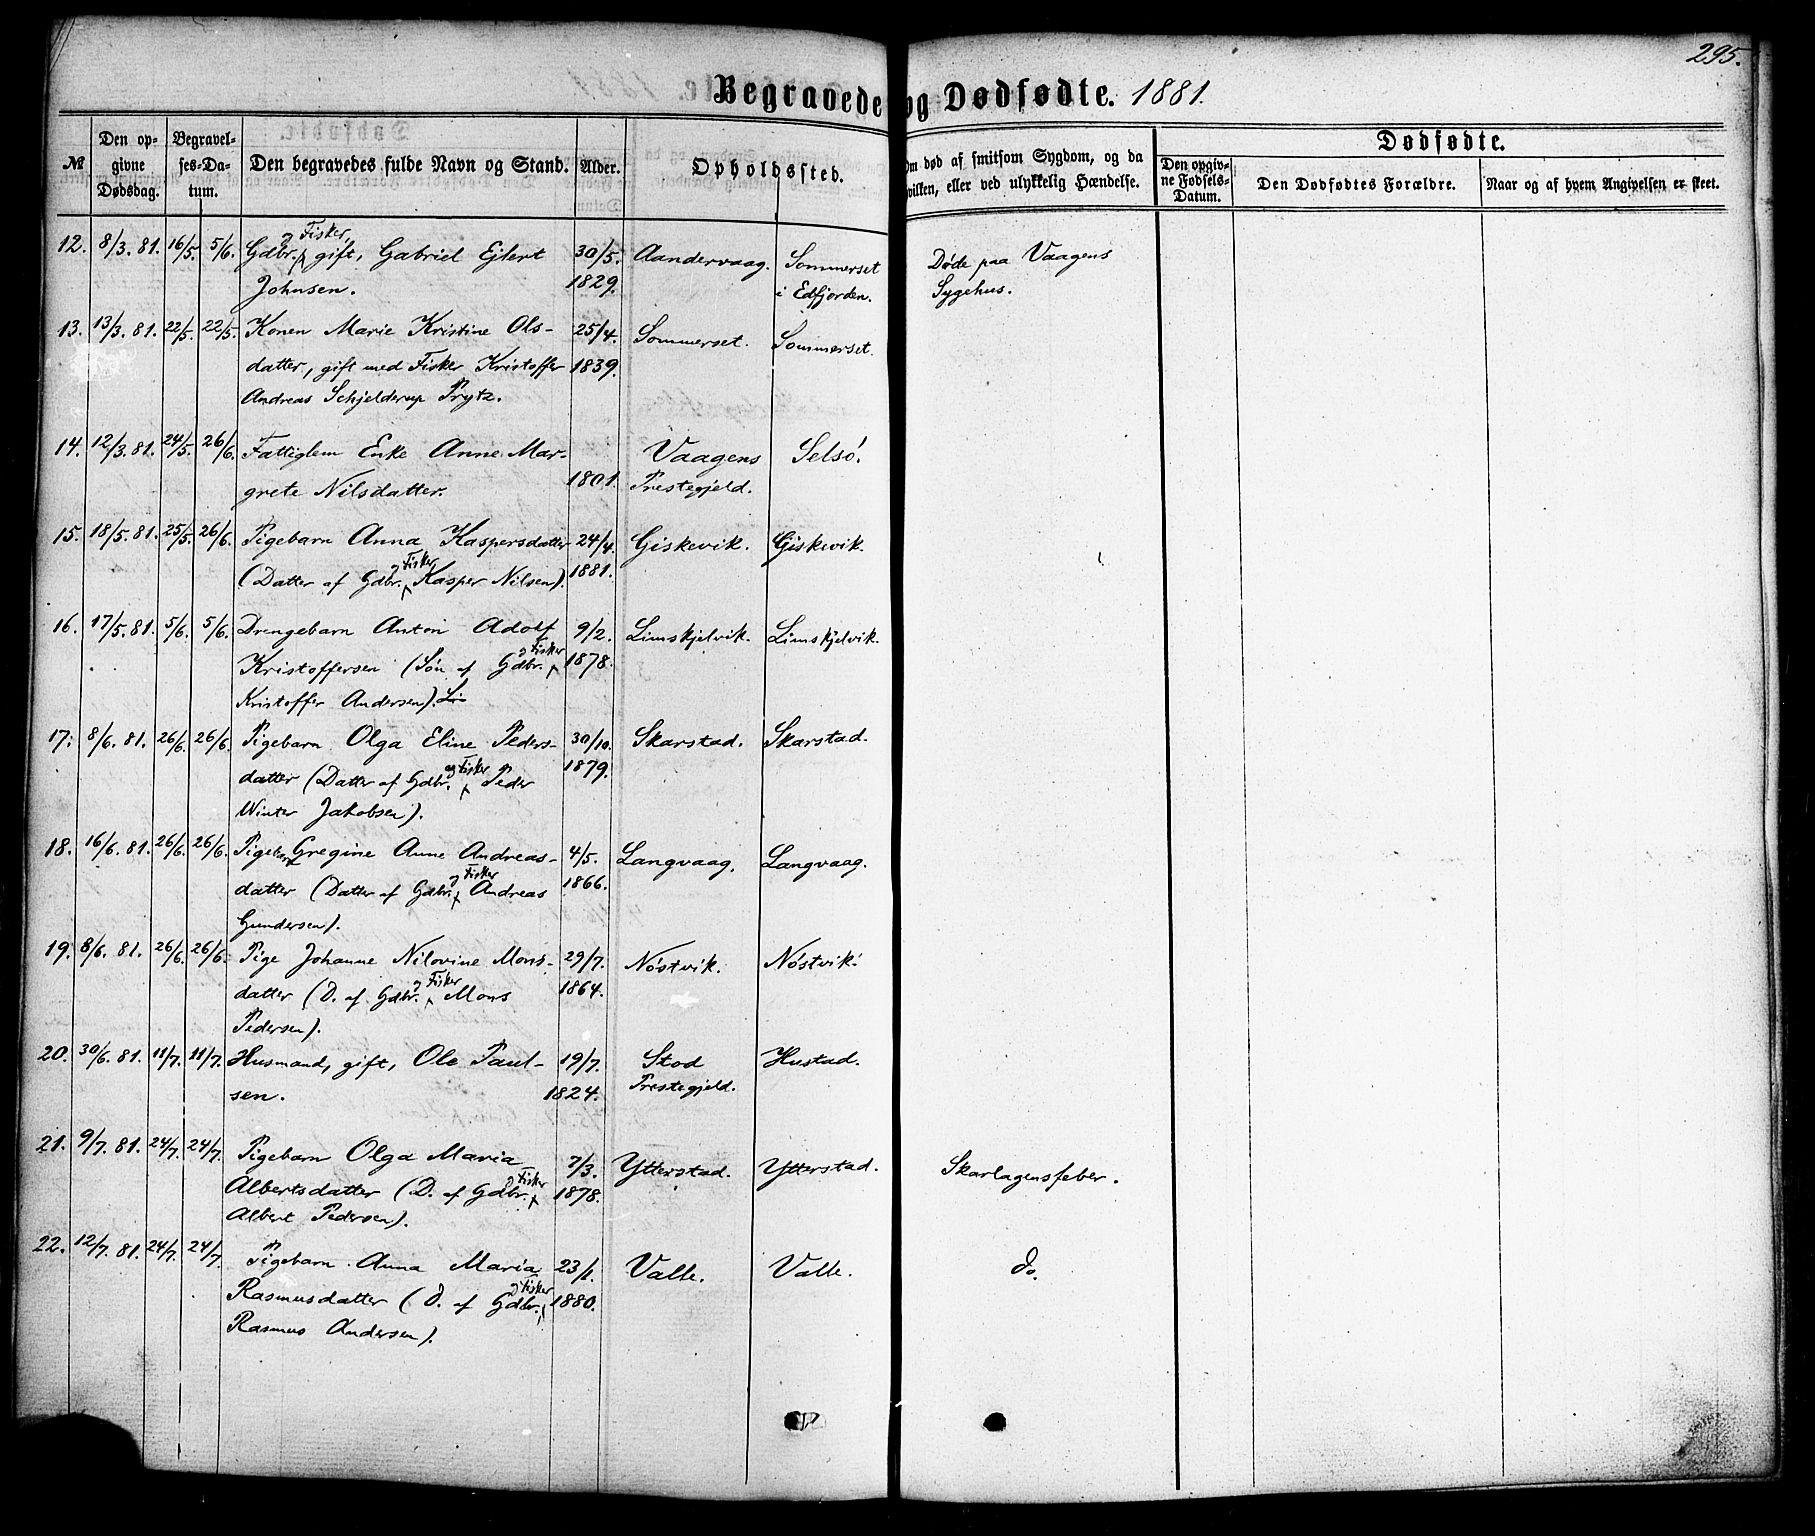 295.
Begravede og Dødfødte. 1881.
№ Den opgivne Dødsdag. Begravelses-Datum. Den begravedes fulde Navn og Stand. Alder. Opholdssted. Om død af smitsom Sygdom, og da hvilken, eller ved ulykkelig Hændelse. Dødfødte. Den opgivne Fødsels-Datum. Den Dødfødtes Forældre. Naar og af hvem Angivelsen er skeet.
12. 8/3. 81. 16/5. 5/6. Gdbr. og Fisker, gift, Gabriel Ejlert 30/5. Aandervaag. Sommerset Døde paa Vaagens
Johnsen. 1829. i Edfjorden. Sygehus.
13. 13/3. 81. 22/5. 22/5. Konen Marie Kristine Ols- 25/4. Sommerset. Sommerset.
datter, gift med Fisker Kristoffer 1839.
Andreas Schjelderup Prytz.
14. 12/3. 81. 24/5. 26/6. Fattiglem Enke Anne Mar- Vaagens Selsö.
grete Nilsdatter. 1801. Prestegjeld.
15. 18/5. 81. 25/5. 26/6. Pigebarn Anna Kaspersdatter 24/4. Giskevik. Giskevik.
(Datter af Gdbr. og Fisker Kasper Nilsen). 1881.
16. 17/5. 81. 5/6. 5/6. Drengebarn Anton Adolf 9/2. Limskjelvik. Limskjelvik.
Kristoffersen (Søn af Gdbr. og Fisker 1878.
Kristoffer Andersen).
17. 8/6. 81. 26/6. 26/6. Pigebarn Olga Eline Peders- 30/10. Skarstad. Skarstad.
datter (Datter af Gdbr. og Fisker Peder 1879.
Winter Jakobsen).
18. 16/6. 81. 26/6. 26/6. Pigebarn Gregine Anne Andreas- 4/5. Langvaag. Langvaag.
datter (Datter af Gdbr. og Fisker Andreas 1866.
Gundersen).
19. 8/6. 81. 26/6. 26/6. Pige Johanne Nilovine Mons- 29/7. Nöstvik. Nöstvik.
datter (D. af Gdbr. og Fisker Mons 1864.
Pedersen).
20. 30/6. 81. 11/7. 11/7. Husmand, gift, Ole Paul- 19/7. Stod Hustad.
sen. 1824. Prestegjeld.
21. 9/7. 81. 24/7. 24/7. Pigebarn Olga Maria 7/3. Ytterstad. Ytterstad. Skarlagensfeber.
Albertsdatter (D. af Gdbr. og Fisker 1878.
Albert Pedersen).
22. 12/7. 81. 24/7. 24/7. Pigebarn Anna Maria 23/1. Valle. Valle. do.
Rasmusdatter (D. af Gdbr. og Fisker 1880.
Rasmus Andersen).